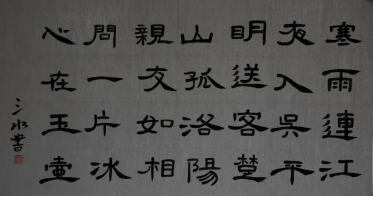 寒雨連江
夜入吳平
明送客楚
山孤洛陽
親友如相
問一片冰
心在玉壺
三水書